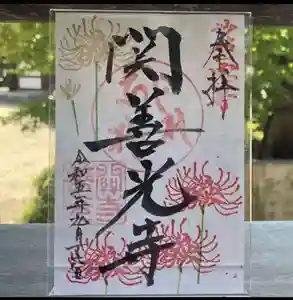 奉拝
関善光寺
令和五年九月